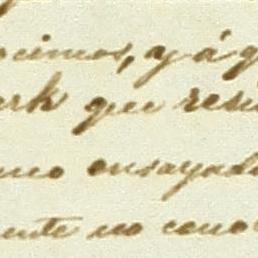 ecimos, y á q
ark que resi
mo ensayad
ente no cono